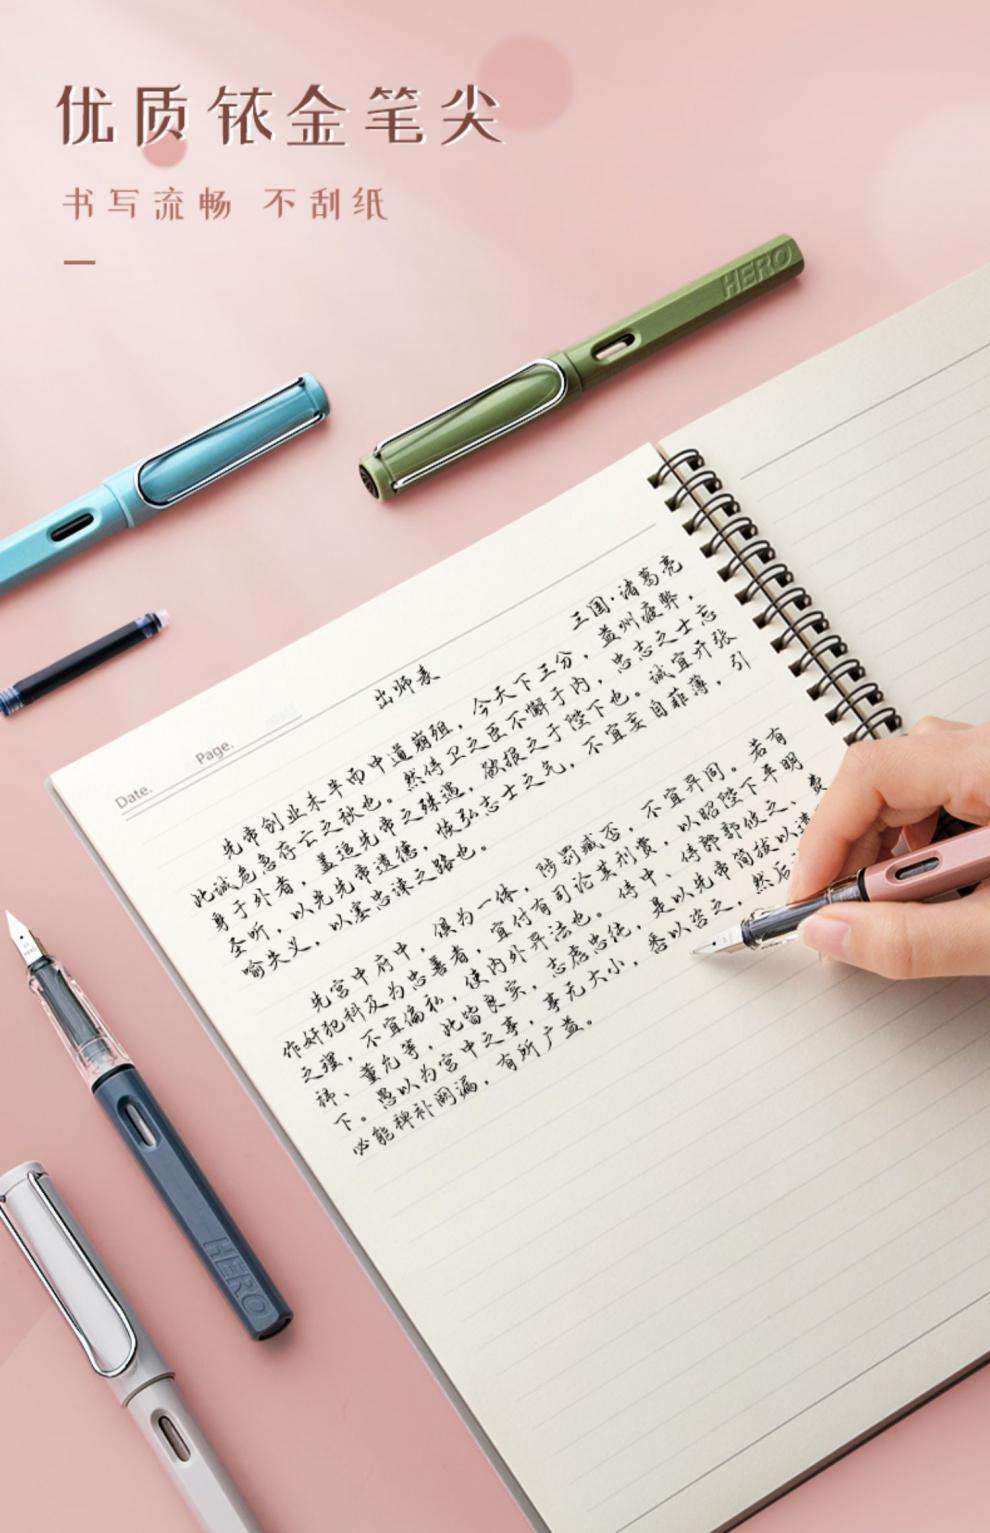 优质铱金笔尖
书写流畅 不刮纸
HERO
Date.
Page.
出师表
三国·诸葛亮
先帝创业未半而中道崩殂，今天下三分，益州疲弊，
此诚危急存亡之秋也。然侍卫之臣不懈于内，忠志之士忘
身于外者，盖追先帝之殊遇，欲报之于陛下也。诚宜开张
圣听，以光先帝遗德，恢弘志士之气，不宜妄自菲薄，引
喻失义，以塞忠谏之路也。
先宫中府中，俱为一体，陟罚臧否，不宜异同。若有
作奸犯科及为忠善者，宜付有司论其刑赏，以昭陛下平明
之理，不宜偏私，使内外异法也。侍中、侍郎郭攸之、费
祎、董允等，此皆良实，志虑忠纯，是以先帝简拔以遗
下。愚以为宫中之事，事无大小，悉以咨之，然后
必能裨补阙漏，有所广益。
HERO